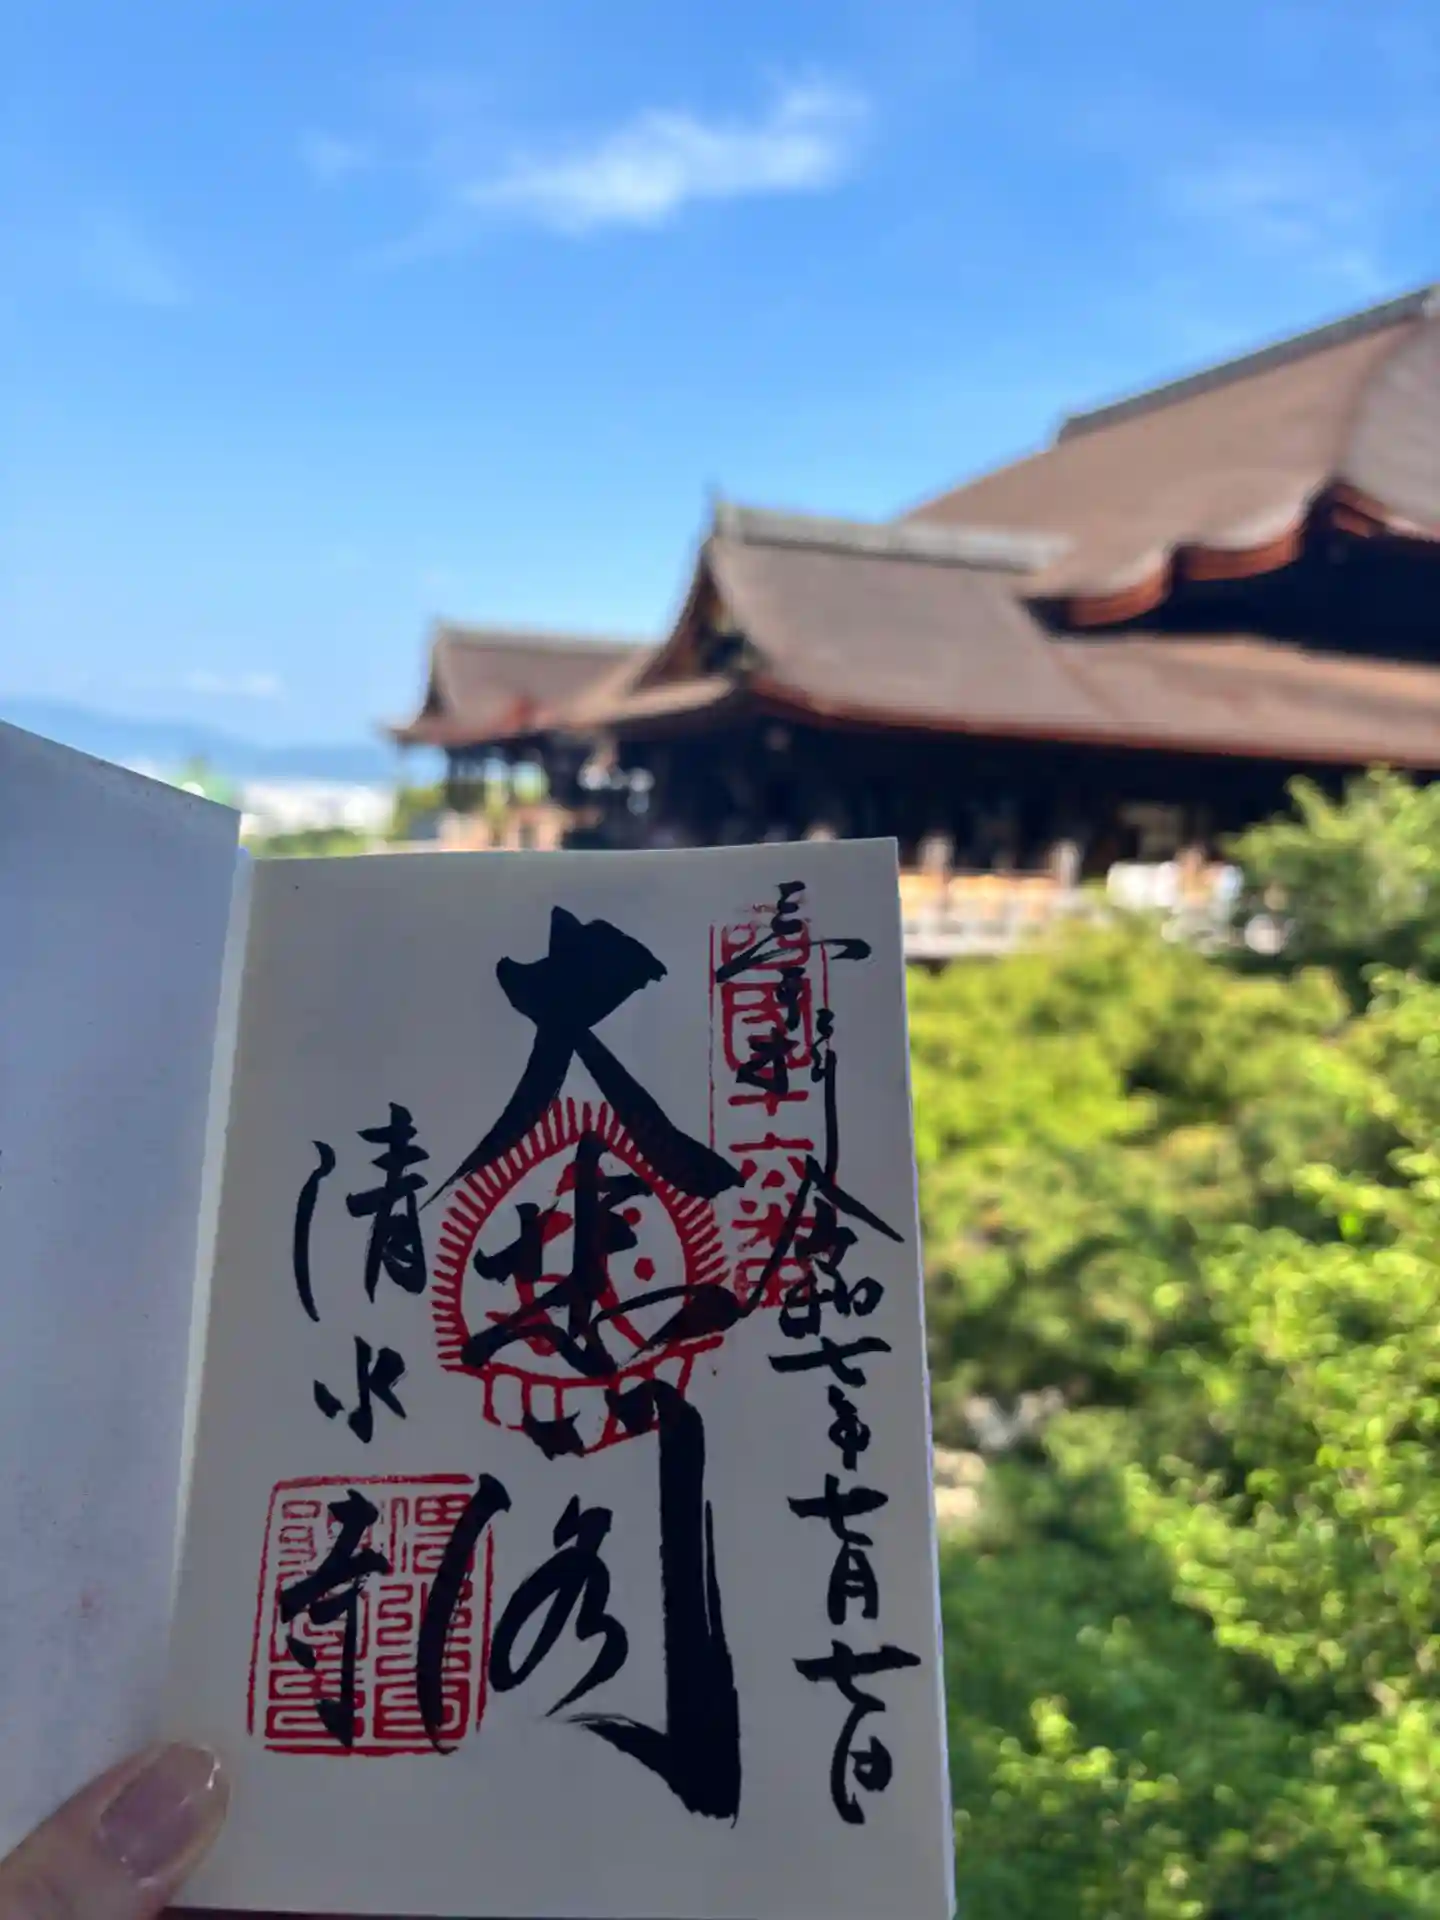 奉拝 令和七年七月七日
西國十六番
大悲閣
清水寺